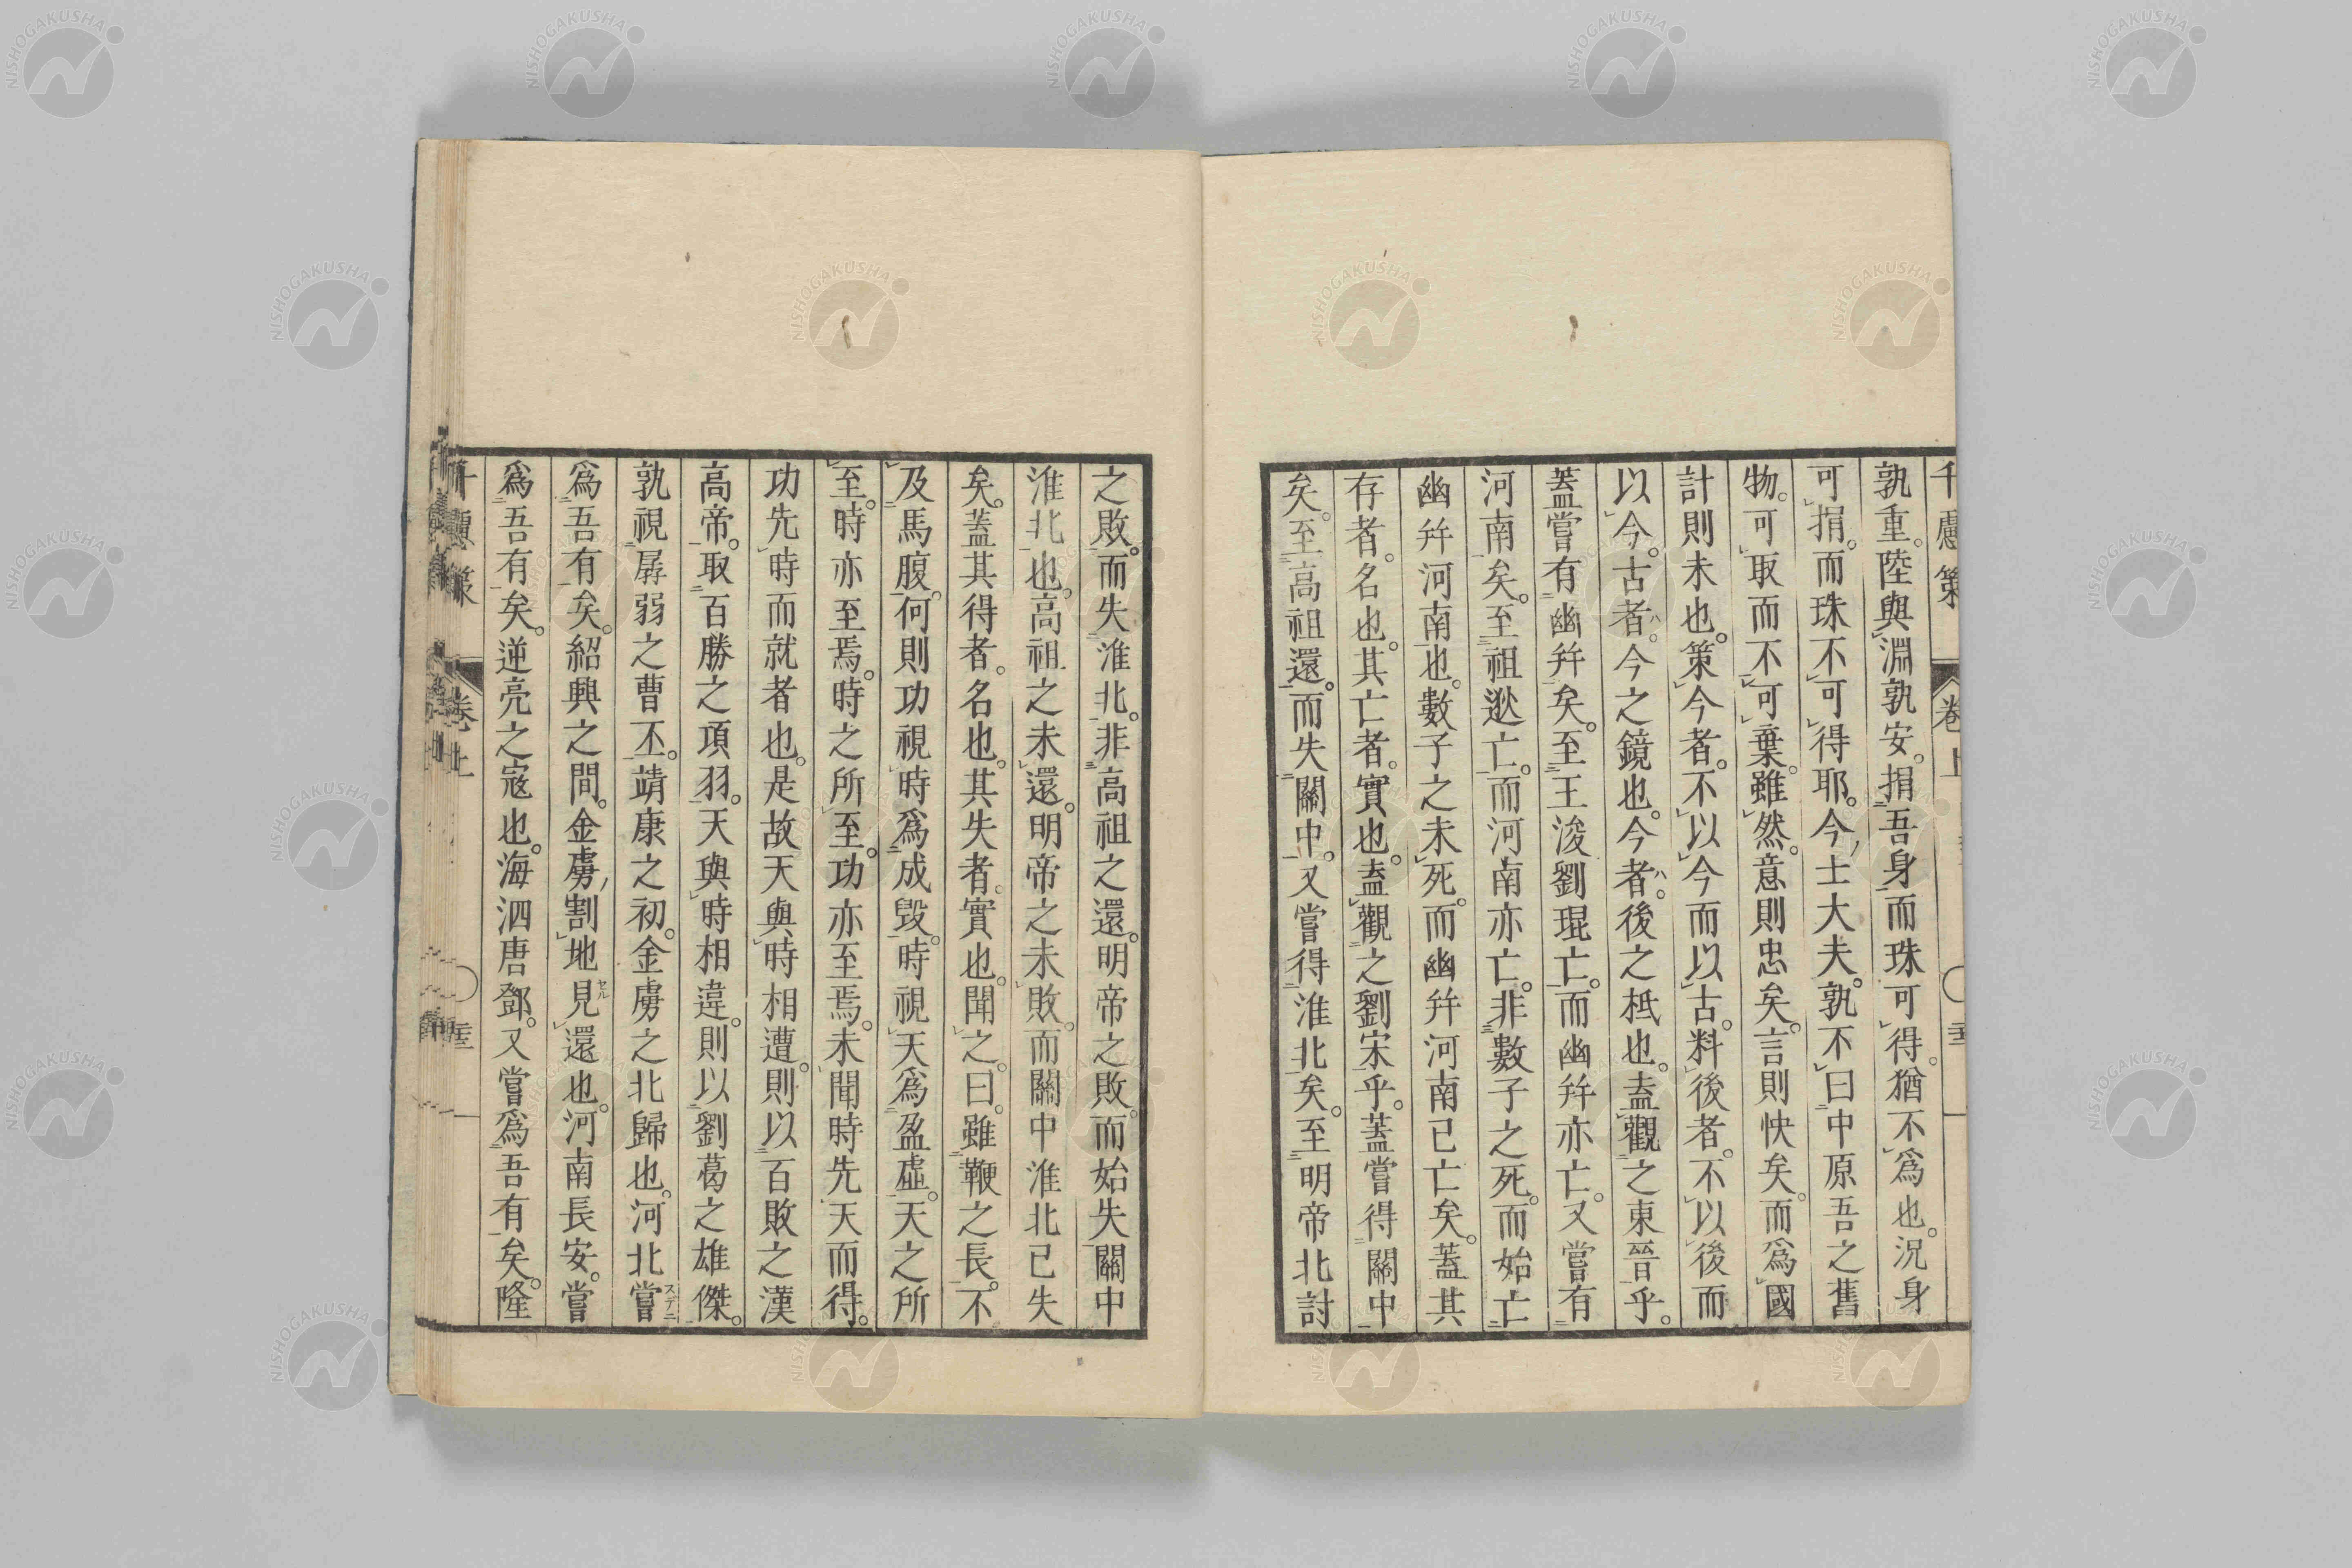 千慮策 卷上
孰重。陸與淵孰安。捐吾身而珠可得。猶不爲也。況身
可捐。而珠不可得耶。今士大夫。孰不曰中原吾之舊
物。可取而不可棄。雖然。意則忠矣。言則快矣。而爲國
計則未也。策今者。不以今而以古。料後者。不以後而
以今。古者ハ。今之鏡也。今者ハ。後之柢也。盍觀之東晉乎。
蓋嘗有幽幷矣。至王浚劉琨亡。而幽幷亦亡。又嘗有
河南矣。至祖逖亡。而河南亦亡。非數子之死。而始亡
幽幷河南也。數子之未死。而幽幷河南已亡矣。蓋其
存者。名也。其亡者。實也。盍觀之劉宋乎。蓋嘗得關中
矣。至高祖還。而失關中。又嘗得淮北矣。至明帝北討
之敗。而失淮北。非高祖之還。明帝之敗。而始失關中
淮北也。高祖之未還。明帝之未敗。而關中淮北已失
矣。蓋其得者。名也。其失者。實也。聞之。曰。雖鞭之長。不
及馬腹。何則功視時爲成毀。時視天爲盈虛。天之所
至。時亦至焉。時之所至。功亦至焉。未聞時先天而得。
功先時而就者也。是故天與時相遭。則以百敗之漢
高帝。取百勝之項羽。天與時相違。則以劉葛之雄傑。
孰視孱弱之曹丕。靖康之初。金虜之北歸也。河北嘗スデニ
爲吾有矣。紹興之間。金虜割地見セル還也。河南長安。嘗
爲吾有矣。逆亮之寇也。海泗唐鄧。又嘗爲吾有矣。隆
千慮策 卷上
NISHOGAKUSHA